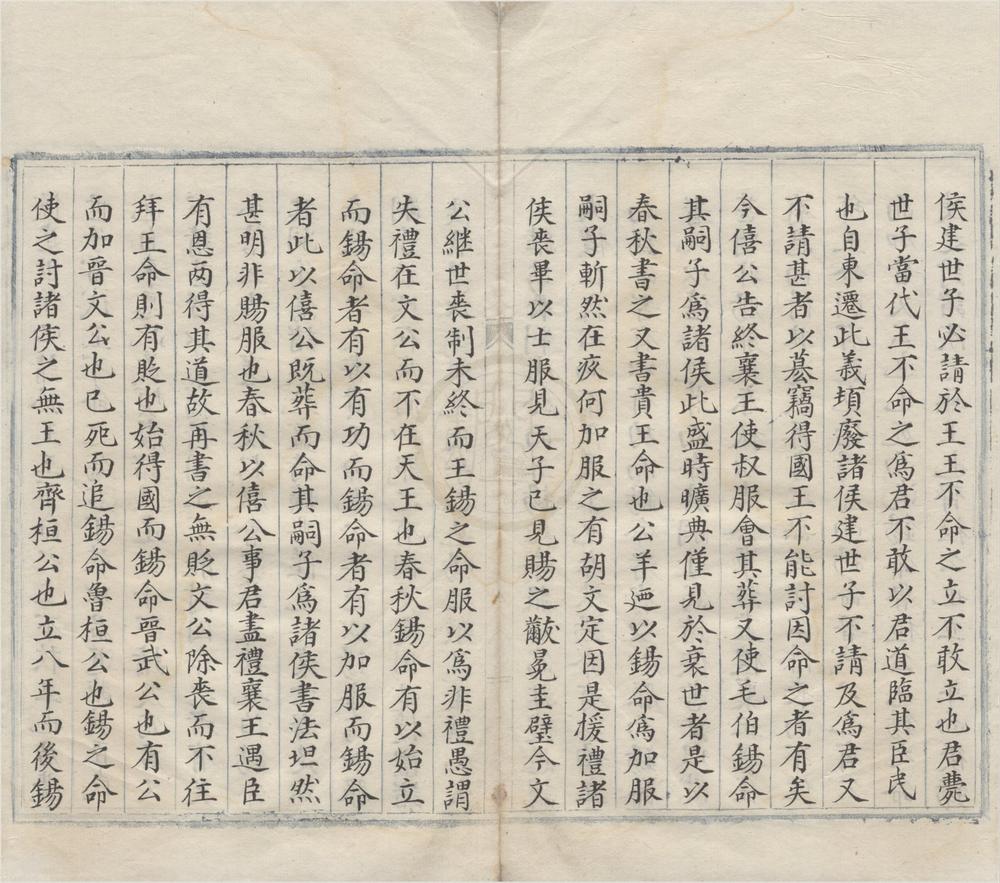 侯建世子必請於王王不命之立不敢立也君薨
世子當代王不命之爲君不敢以君道臨其臣民
也自東遷此義頓廢諸侯建世子不請及爲君又
不請甚者以簒竊得國王不能討因命之者有矣
今僖公告終襄王使叔服會其葬又使毛伯錫命
其嗣子爲諸侯此盛時曠典僅見於衰世者是以
春秋書之又書貴王命也公羊迺以錫命爲加服
嗣子斬然在疚何加服之有胡文定因是援禮諸
侯喪畢以士服見天子已見賜之黻冕圭璧今文
公継世喪制未終而王錫之命服以爲非禮愚謂
失禮在文公而不在天王也春秋錫命有以始立
而錫命者有以有功而錫命者有以加服而錫命
者此以僖公既葬而命其嗣子爲諸侯書法坦然
甚明非賜服也春秋以僖公事君盡禮襄王遇臣
有恩两得其道故再書之無貶文公除喪而不往
拜王命則有貶也始得國而錫命晉武公也有公
而加晉文公也已死而追錫命魯桓公也錫之命
使之討諸侯之無王也齊桓公也立八年而後錫